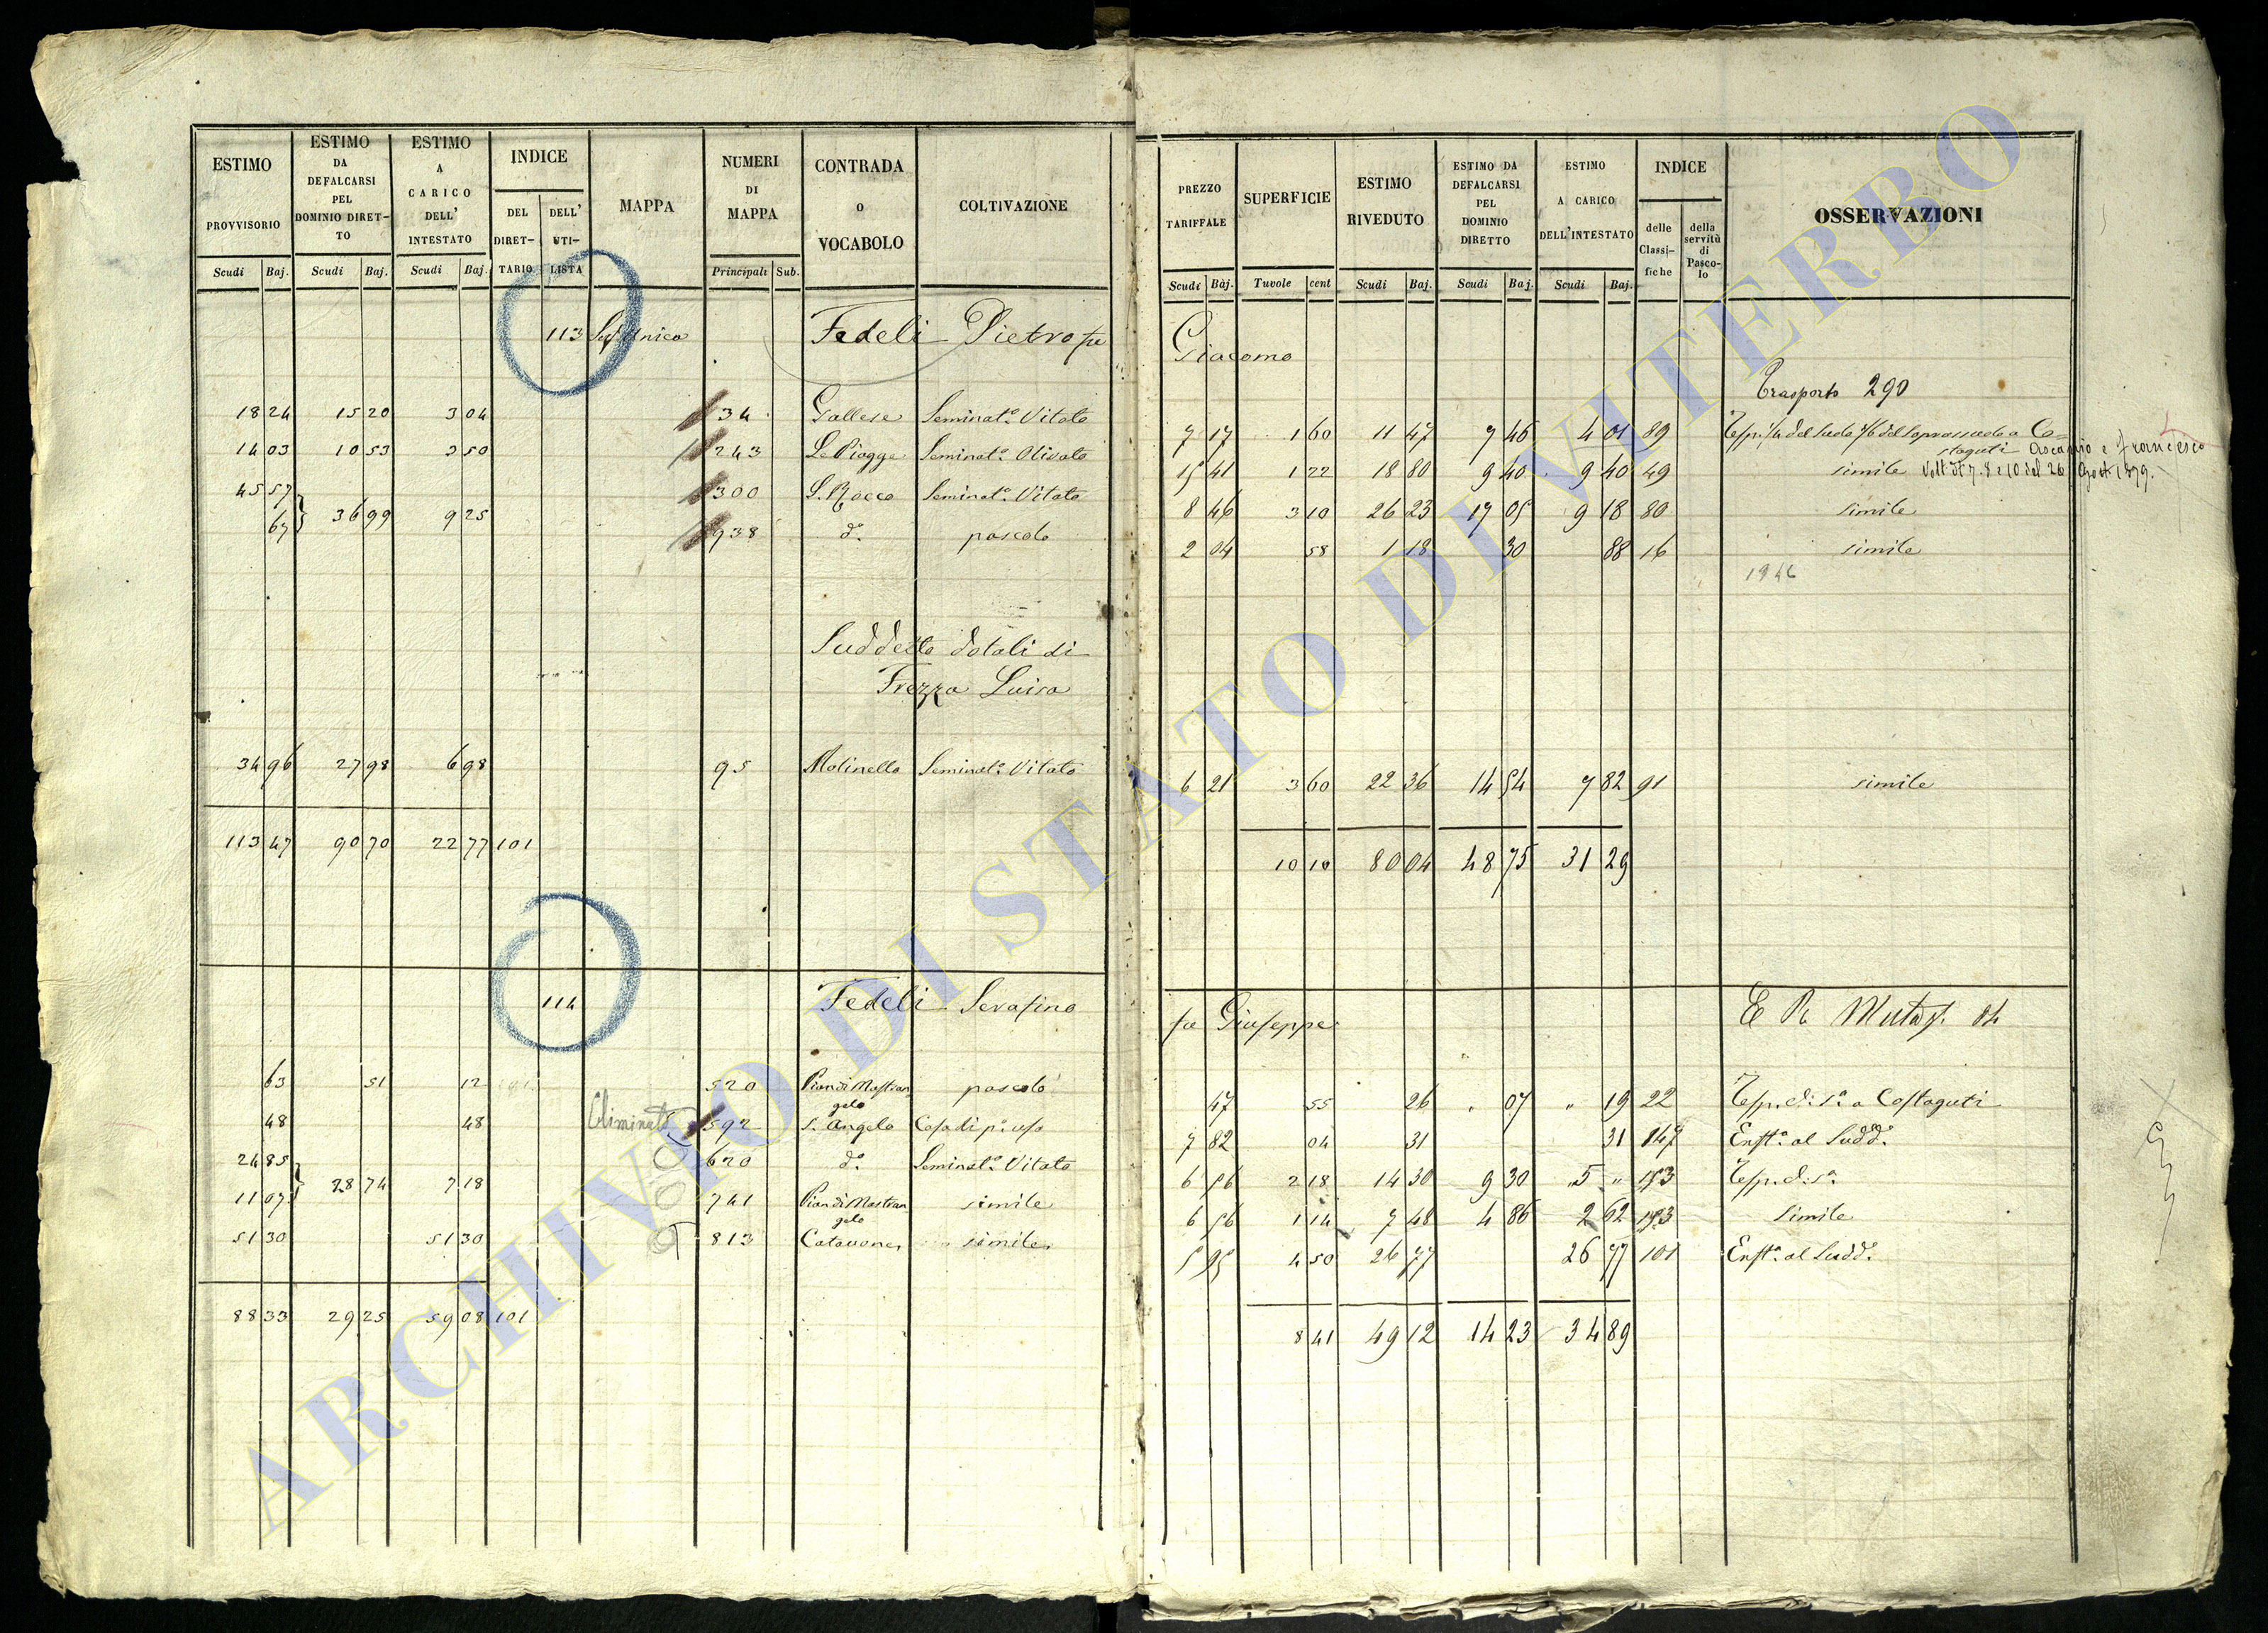 ESTIMO PROVVISORIO
ESTIMO DA DEFALCARSI PEL DOMINIO DIRET- TO
ESTIMO A CARICO DELL' INTESTATO
INDICE
DEL DIRET- TARIO
DELL' UTI- LISTA
MAPPA
NUMERI DI MAPPA
CONTRADA o VOCABOLO
COLTIVAZIONE
Scudi Baj. Scudi Baj. Scudi Baj. Principali Sub.
113 Unica Fedeli Pietro fu
18 24 15 20 3 04 34 Gallese Seminato. Vitato
14 03 10 53 3 50 243 Le Piagge Seminato. Olivato
45 57 300 S. Rocco Seminato. Vitato
36 99 9 25
67 938 do. pascolo
Suddetto dotali di
Frezza Luisa
34 96 27 98 6 98 95 Molinella Seminato. Vitato
113 47 90 70 22 77 101
114 Fedeli Serafino
63 51 12 520 Pian di Mastran gelo pascolo
48 48 Eliminato 592 S. Angelo Casa di po. uso
24 85 620 do. Seminato. Vitato
28 74 7 18
11 07 741 Pian di Mastran gelo simile
51 30 51 30 813 Catavone simile
88 33 29 25 59 08 101
PREZZO TARIFFALE
SUPERFICIE
ESTIMO RIVEDUTO
ESTIMO DA DEFALCARSI PEL DOMINIO DIRETTO
ESTIMO A CARICO DELL'INTESTATO
INDICE
delle Classi- fiche
della servitù di Pasco- lo
OSSERVAZIONI
Scudi Bàj. Tuvole cent Scudi Baj. Scudi Baj. Scudi Baj.
Giacomo
Trasporto 290
7 17 1 60 11 47 7 46 4 01 89 Co-
staguti Ascanio e Francesco
15 41 1 22 18 80 9 40 9 40 49 simile
8 46 3 10 26 23 17 05 9 18 80 simile
2 04 58 1 18 30 88 16 simile
1946
6 21 3 60 22 36 14 54 7 82 91 simile
10 10 80 04 48 75 31 29
fu Giuseppe
47 55 26 " 07 " 19 22 Risp. di 5a a Costaguti
7 82 04 31 31 147 Enfta. al Suddo.
6 56 2 18 14 30 9 30 5 " 193 Risp. di 5a
6 56 1 14 7 48 4 86 2 62 193 Simile
5 95 4 50 26 77 26 77 101 Enfta. al Suddo.
8 41 49 12 14 23 34 89
ARCHIVIO DI STATO DI VITERBO